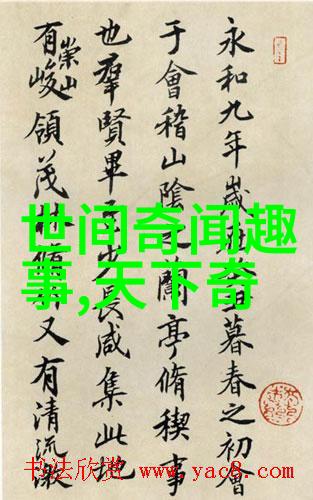 永和九年歲在暮春之初會
于會稽山陰之蘭亭脩稧事
也羣賢畢至少長咸集此地
有崇山峻領茂林脩竹又有清流激
世间奇闻趣
事,天下奇
书法欣赏 www.yac8.com